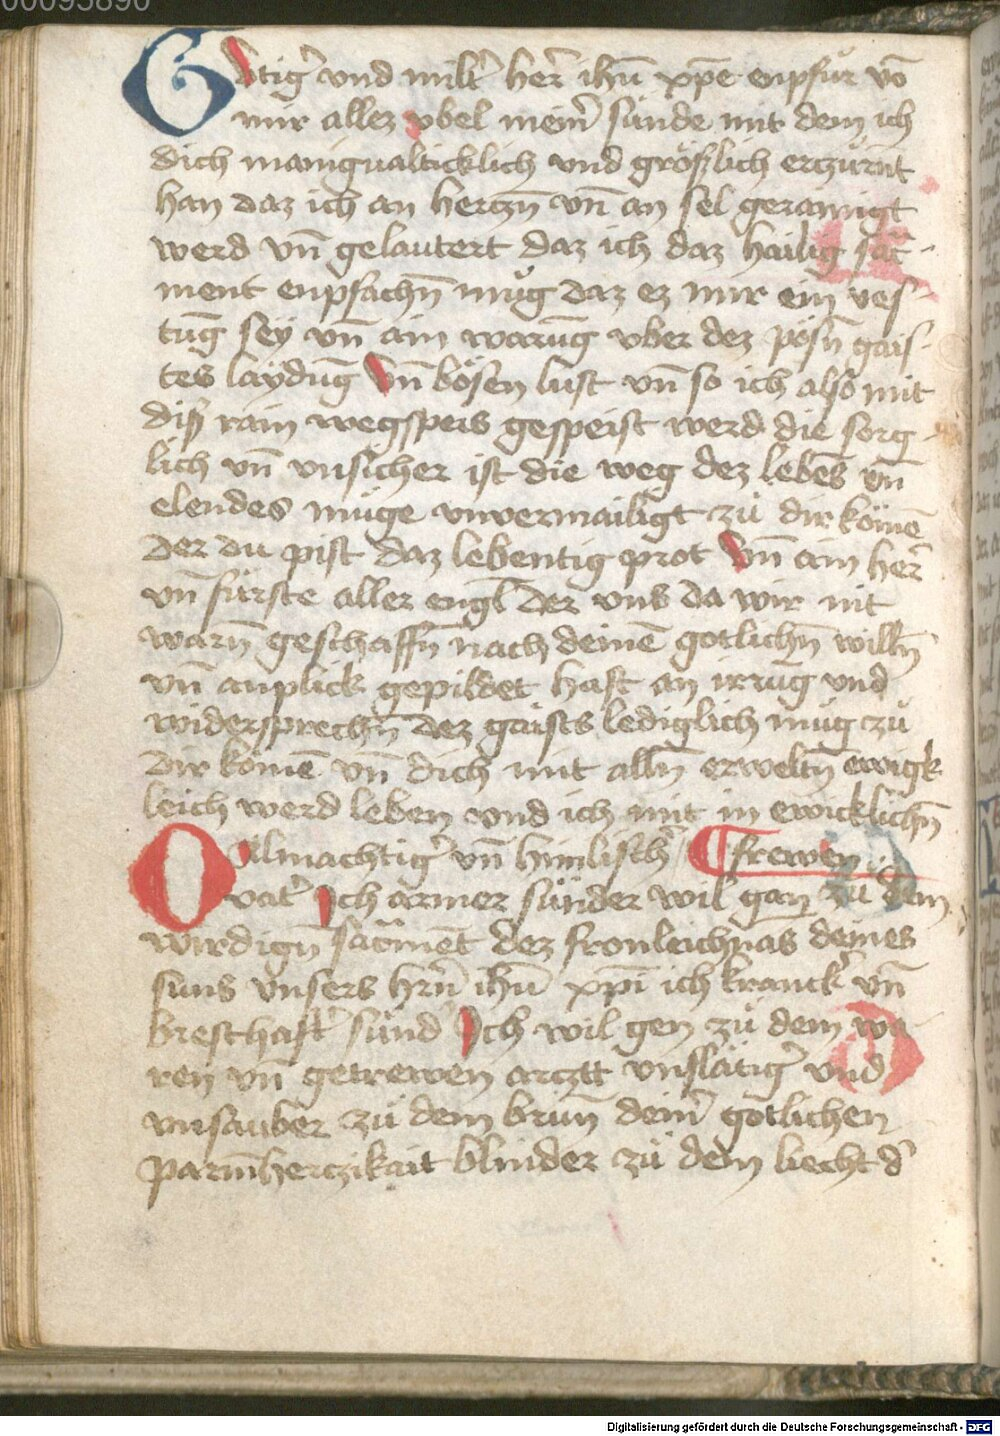 00095890
Gvtigͤ vnd miltͤ herͤ ihū xp̄e enpfür vō
mir allez vbel meinͤ sünde mit dem ich
dich manigualticklich vnd größlich erczürnt
han daz ich an herczn̄ vn̄ an sel gerainigt
werd vn̄ gelautert daz ich daz hailig sac̄-
ment enpfachn̄ müg daz ez mir ein ves-
tūg sey vn̄ ain warūg vber dez pösn̄ gais-
tes laydūg Vn̄ bösen lust vn̄ so ich also mit
disͤ rain wegspeis gespeist werd die sorg-
lich vn̄ vnsicher ist die weg dez lebēs vn̄
elendes müge vnvermailigt zu dir kömē
der du pist daz lebentig prot Vn̄ ain herͤ
vn̄ fürste aller engl der vns da wir nit
warn̄ geschaffn̄ nach deinē gotlichn̄ willn̄
vn̄ anplick gepildet hast an irrūg vnd
widersprechn̄ dez gaists lediglich müg zü
dir komē vn̄ dich mit alln̄ erweltn̄ ewigk
leich werd leben vnd ich mit in ewicklichn̄
O Almachtigͤ vn̄ himlischͤ ¶ frewen
vatͤ Ich armer sünder wil gan zü dem
wirdign̄ sac̄mēt dez fronleichnās deines
suns vnsers hrn̄ ihū xp̄i ich kranckͤ vn̄
bresthaftͤ sündͤ Ich wil gen zü dem wa-
ren vn̄ getrewen arcztt vnflätigͤ vnd
vnsauber zü dem brun̄ deinͤ gotlichen
parm̄herczikait blinder zü dem liecht dͤ
Digitalisierung gefördert durch die Deutsche Forschungsgemeinschaft - DFG